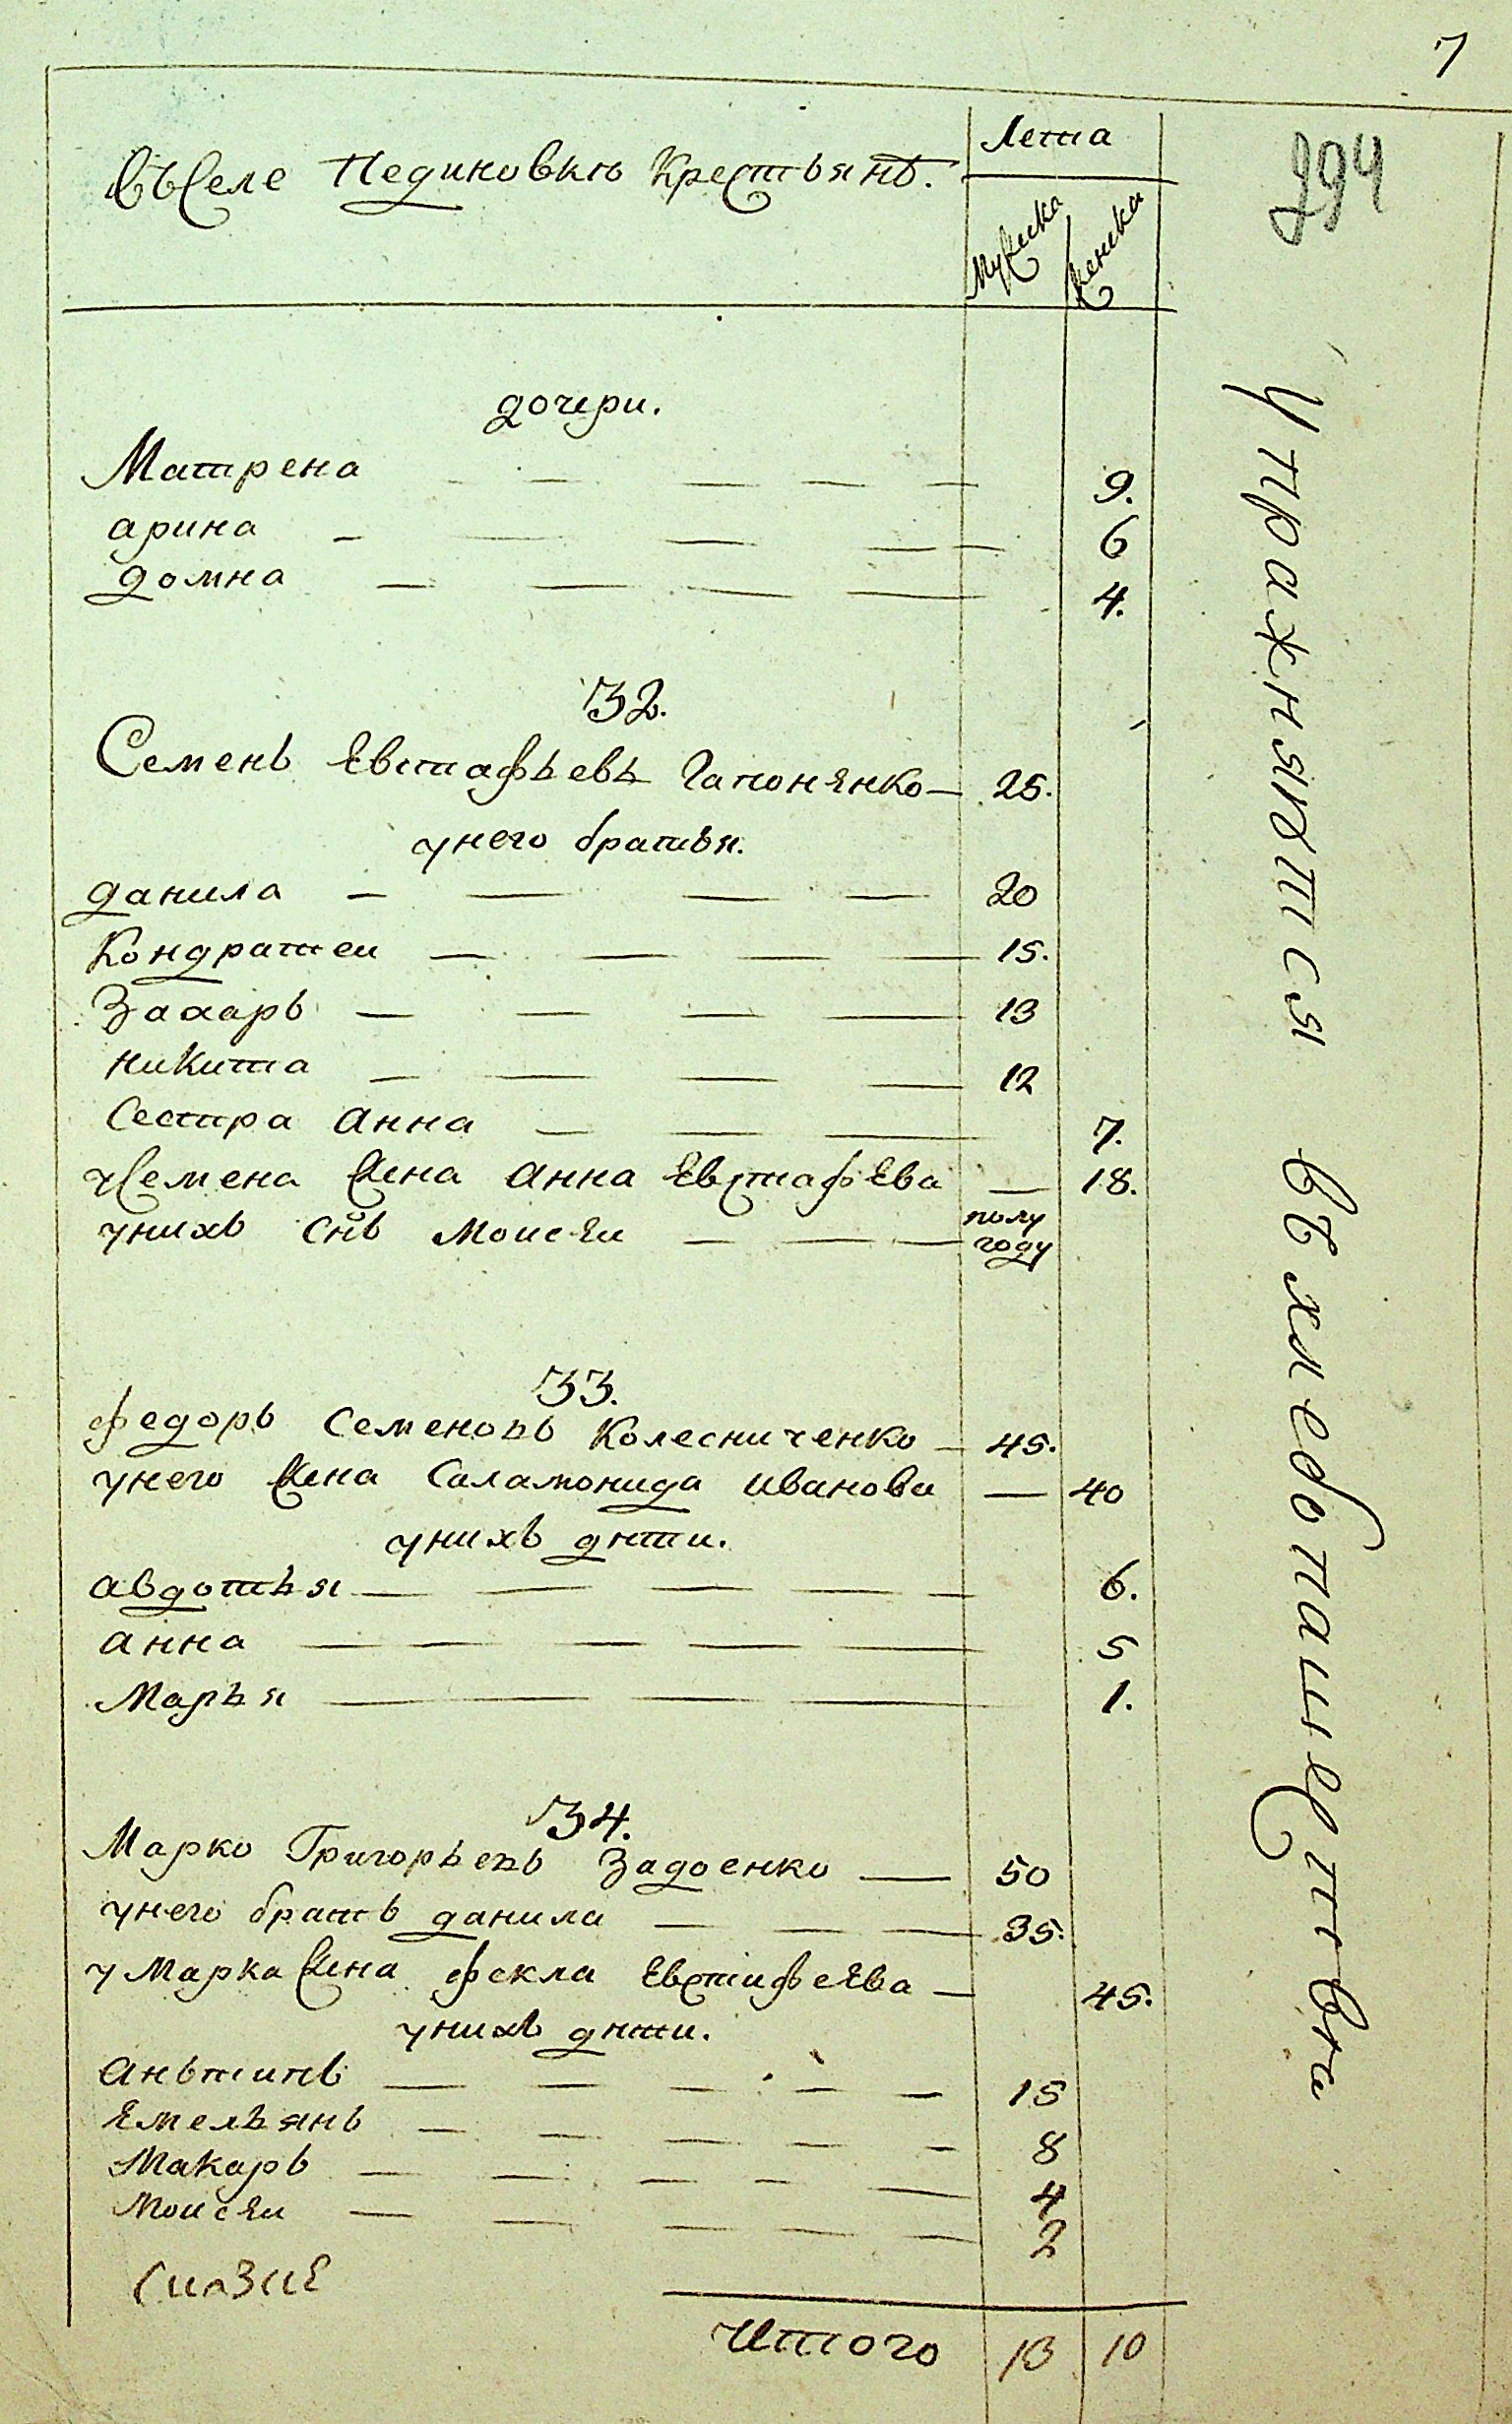 7
294
Въ Селе Пединовкѣ Крестьянъ.
Лета
Мужеска
Женска
дочери.
Матрена 9.
арина 6
домна 4.
32.
Семенъ Евстафьевъ Гапоненко 25.
унего братья.
данила 20
Кондратеи 15.
Захаръ 13
никита 12
Сестра анна 7.
уСемена жена анна Евстафьева 18.
унихъ снъ моисеи полу году
33.
федоръ Семеновъ Колесниченко 45.
унего жена Саламонида иванова 40
унихъ дѣти.
авдотья 6.
анна 5
Марья 1.
34.
Марко Григорьевъ Задоенко 50
унего братъ данила 35.
умарка жена фекла Евстифеева 45.
унихъ дѣти.
аньтипъ 15
Емельянъ 8
Макаръ 4
Моисеи 2
Итого 13 10
Упражняются въ хлебопашестве